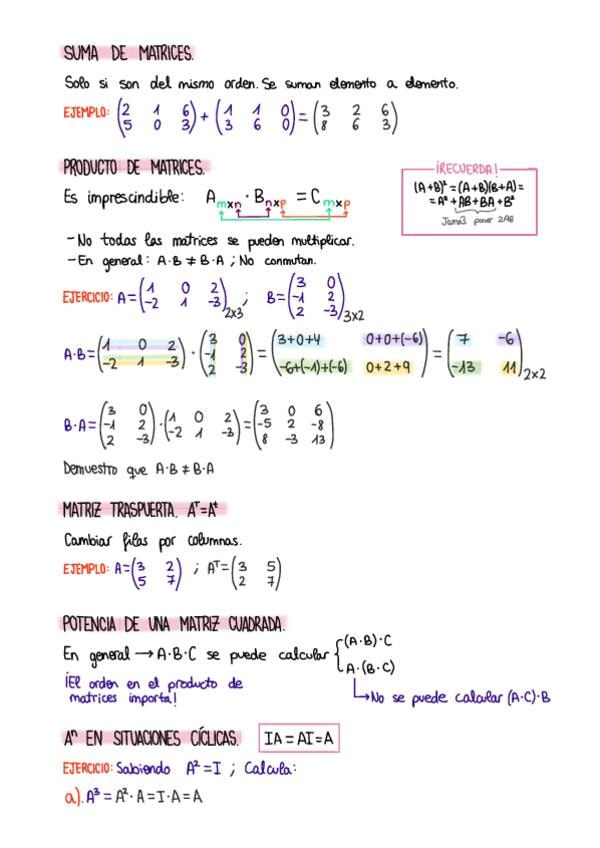 SUMA DE MATRICES.
Solo si son del mismo orden. Se suman elemento a elemento.
EJEMPLO: (2 1 6; 5 0 3) + (1 1 0; 3 6 0) = (3 2 6; 8 6 3)
PRODUCTO DE MATRICES.
Es imprescindible: Amxn · Bnxp = Cmxp
¡RECUERDA!
(A+B)² = (A+B)(B+A) =
= A² + AB + BA + B²
Jamás poner 2AB
- No todas las matrices se pueden multiplicar.
- En general: A·B ≠ B·A ; No conmutan.
EJERCICIO: A = (1 0 2; -2 1 -3)2x3 ; B = (3 0; -1 2; 2 -3)3x2
A·B = (1 0 2; -2 1 -3) · (3 0; -1 2; 2 -3) = (3+0+4 0+0+(-6); -6+(-1)+(-6) 0+2+9) = (7 -6; -13 11)2x2
B·A = (3 0; -1 2; 2 -3) · (1 0 2; -2 1 -3) = (3 0 6; -5 2 -8; 8 -3 13)
Demuestro que A·B ≠ B·A
MATRIZ TRASPUERTA. Aᵀ = Aᵗ
Cambiar filas por columnas.
EJEMPLO: A = (3 2; 5 7) ; Aᵀ = (3 5; 2 7)
POTENCIA DE UNA MATRIZ CUADRADA.
En general → A·B·C se puede calcular { (A·B)·C
A·(B·C)
¡El orden en el producto de
matrices importa!
↳ No se puede calcular (A·C)·B
Aⁿ EN SITUACIONES CÍCLICAS. IA = AI = A
EJERCICIO: Sabiendo A² = I ; Calcula:
a). A³ = A² · A = I · A = A